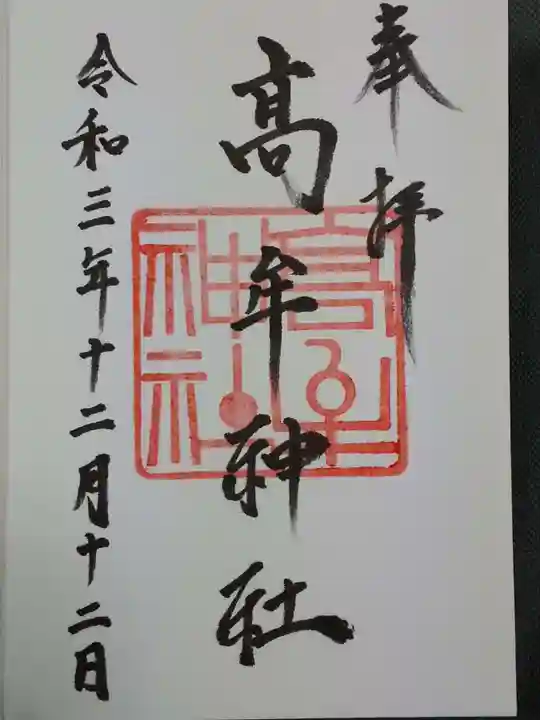 奉拝
髙牟神社
令和三年十二月十二日
高牟神社